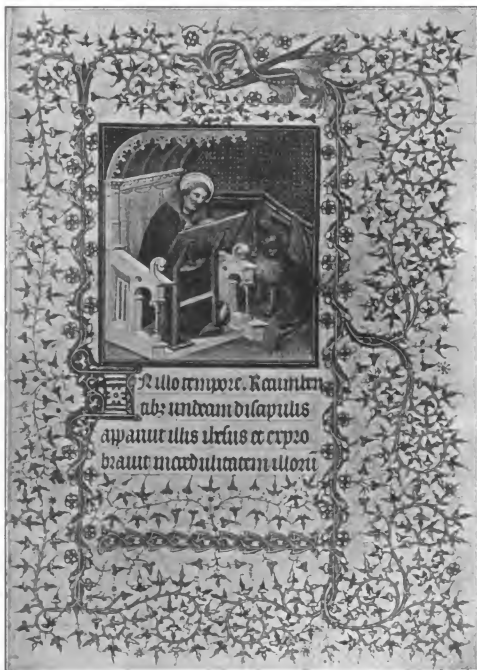 IN illo tempore. Recumben
tibz undecim discipulis
apparuit illis ihesus et expro
bravit incredulitatem illorū